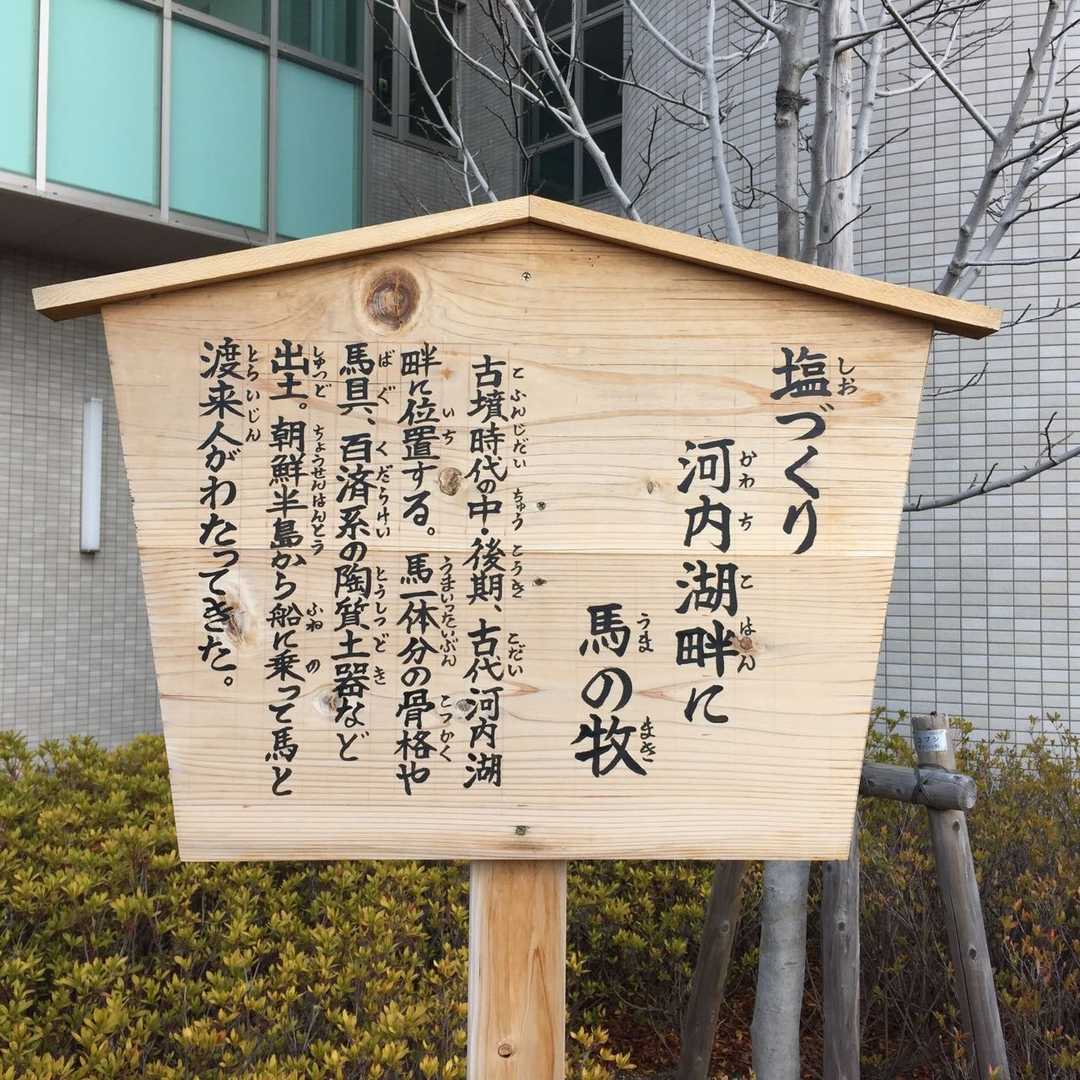 塩づくり
河内湖畔に
馬の牧
古墳時代の中・後期、古代河内湖
畔に位置する。馬一体分の骨格や
馬具、百済系の陶質土器など
出土。朝鮮半島から船に乗って馬と
渡来人がわたってきた。